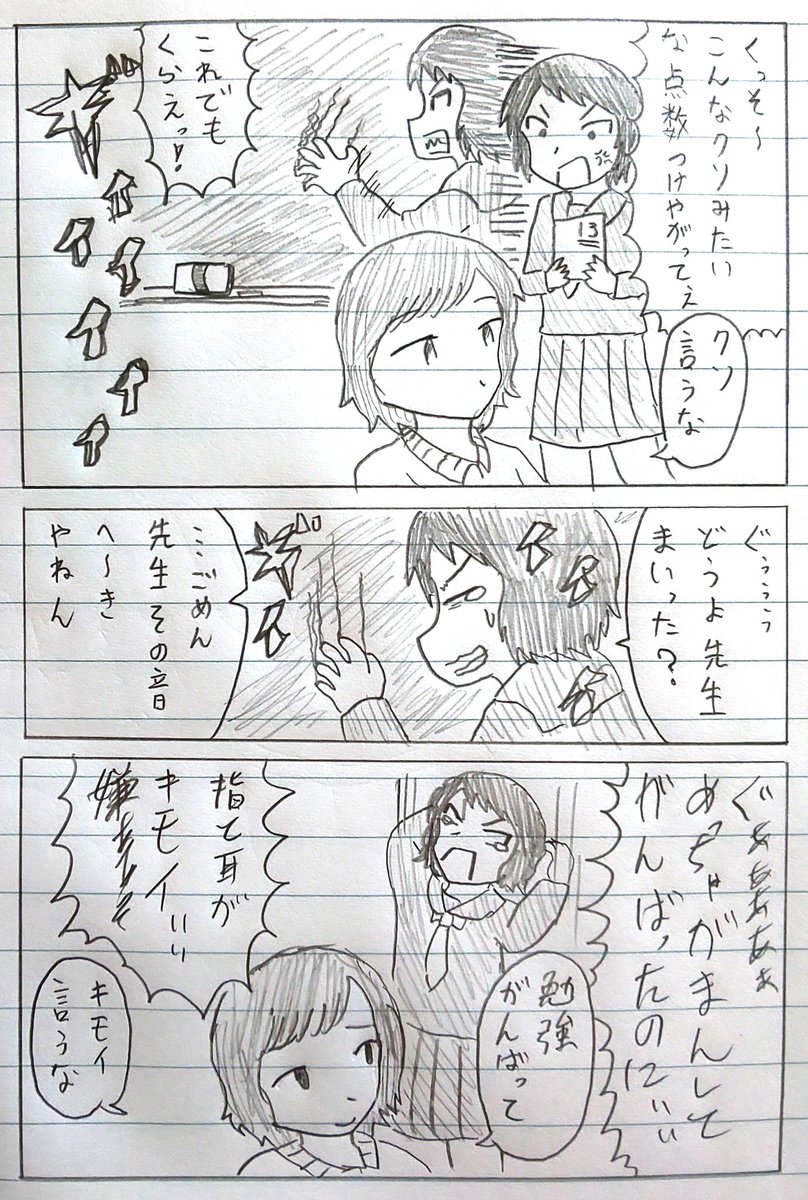 くっそ〜
こんなクソみたい
な点数つけやがってぇ
クソ
言うな
13
これでも
くらえっ!
ぐぅぅぅぅ
どうよ先生
まいった?
ごめん
先生その音
へ〜き
やねん
ぐぁぁぁぁぁ
めっちゃがまんして
がんばったのにぃぃ
勉強
がんばって
指と耳が
キモイぃぃ
キモイ
言うな